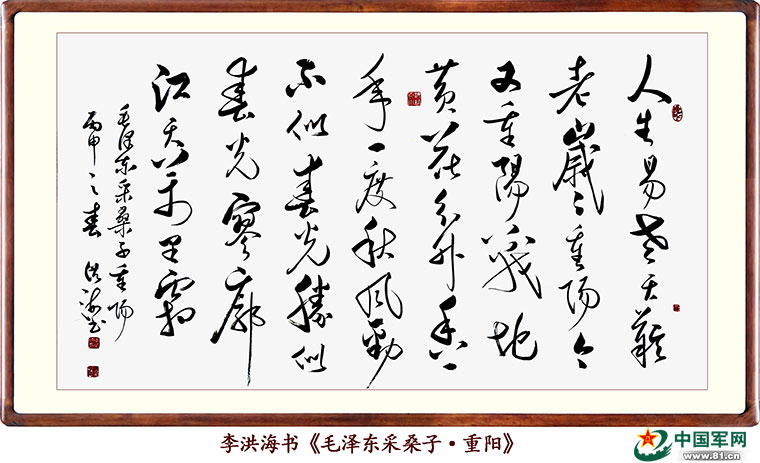 人生易老天難
老歲〻重陽今
又重陽戰地
黄花分外香一
年一度秋風勁
不似春光勝似
春光寥廓
江天万里霜
毛澤东采桑子重陽
丙申之春 洪海书
李洪海书《毛泽东采桑子·重阳》
中国军网
www.81.cn